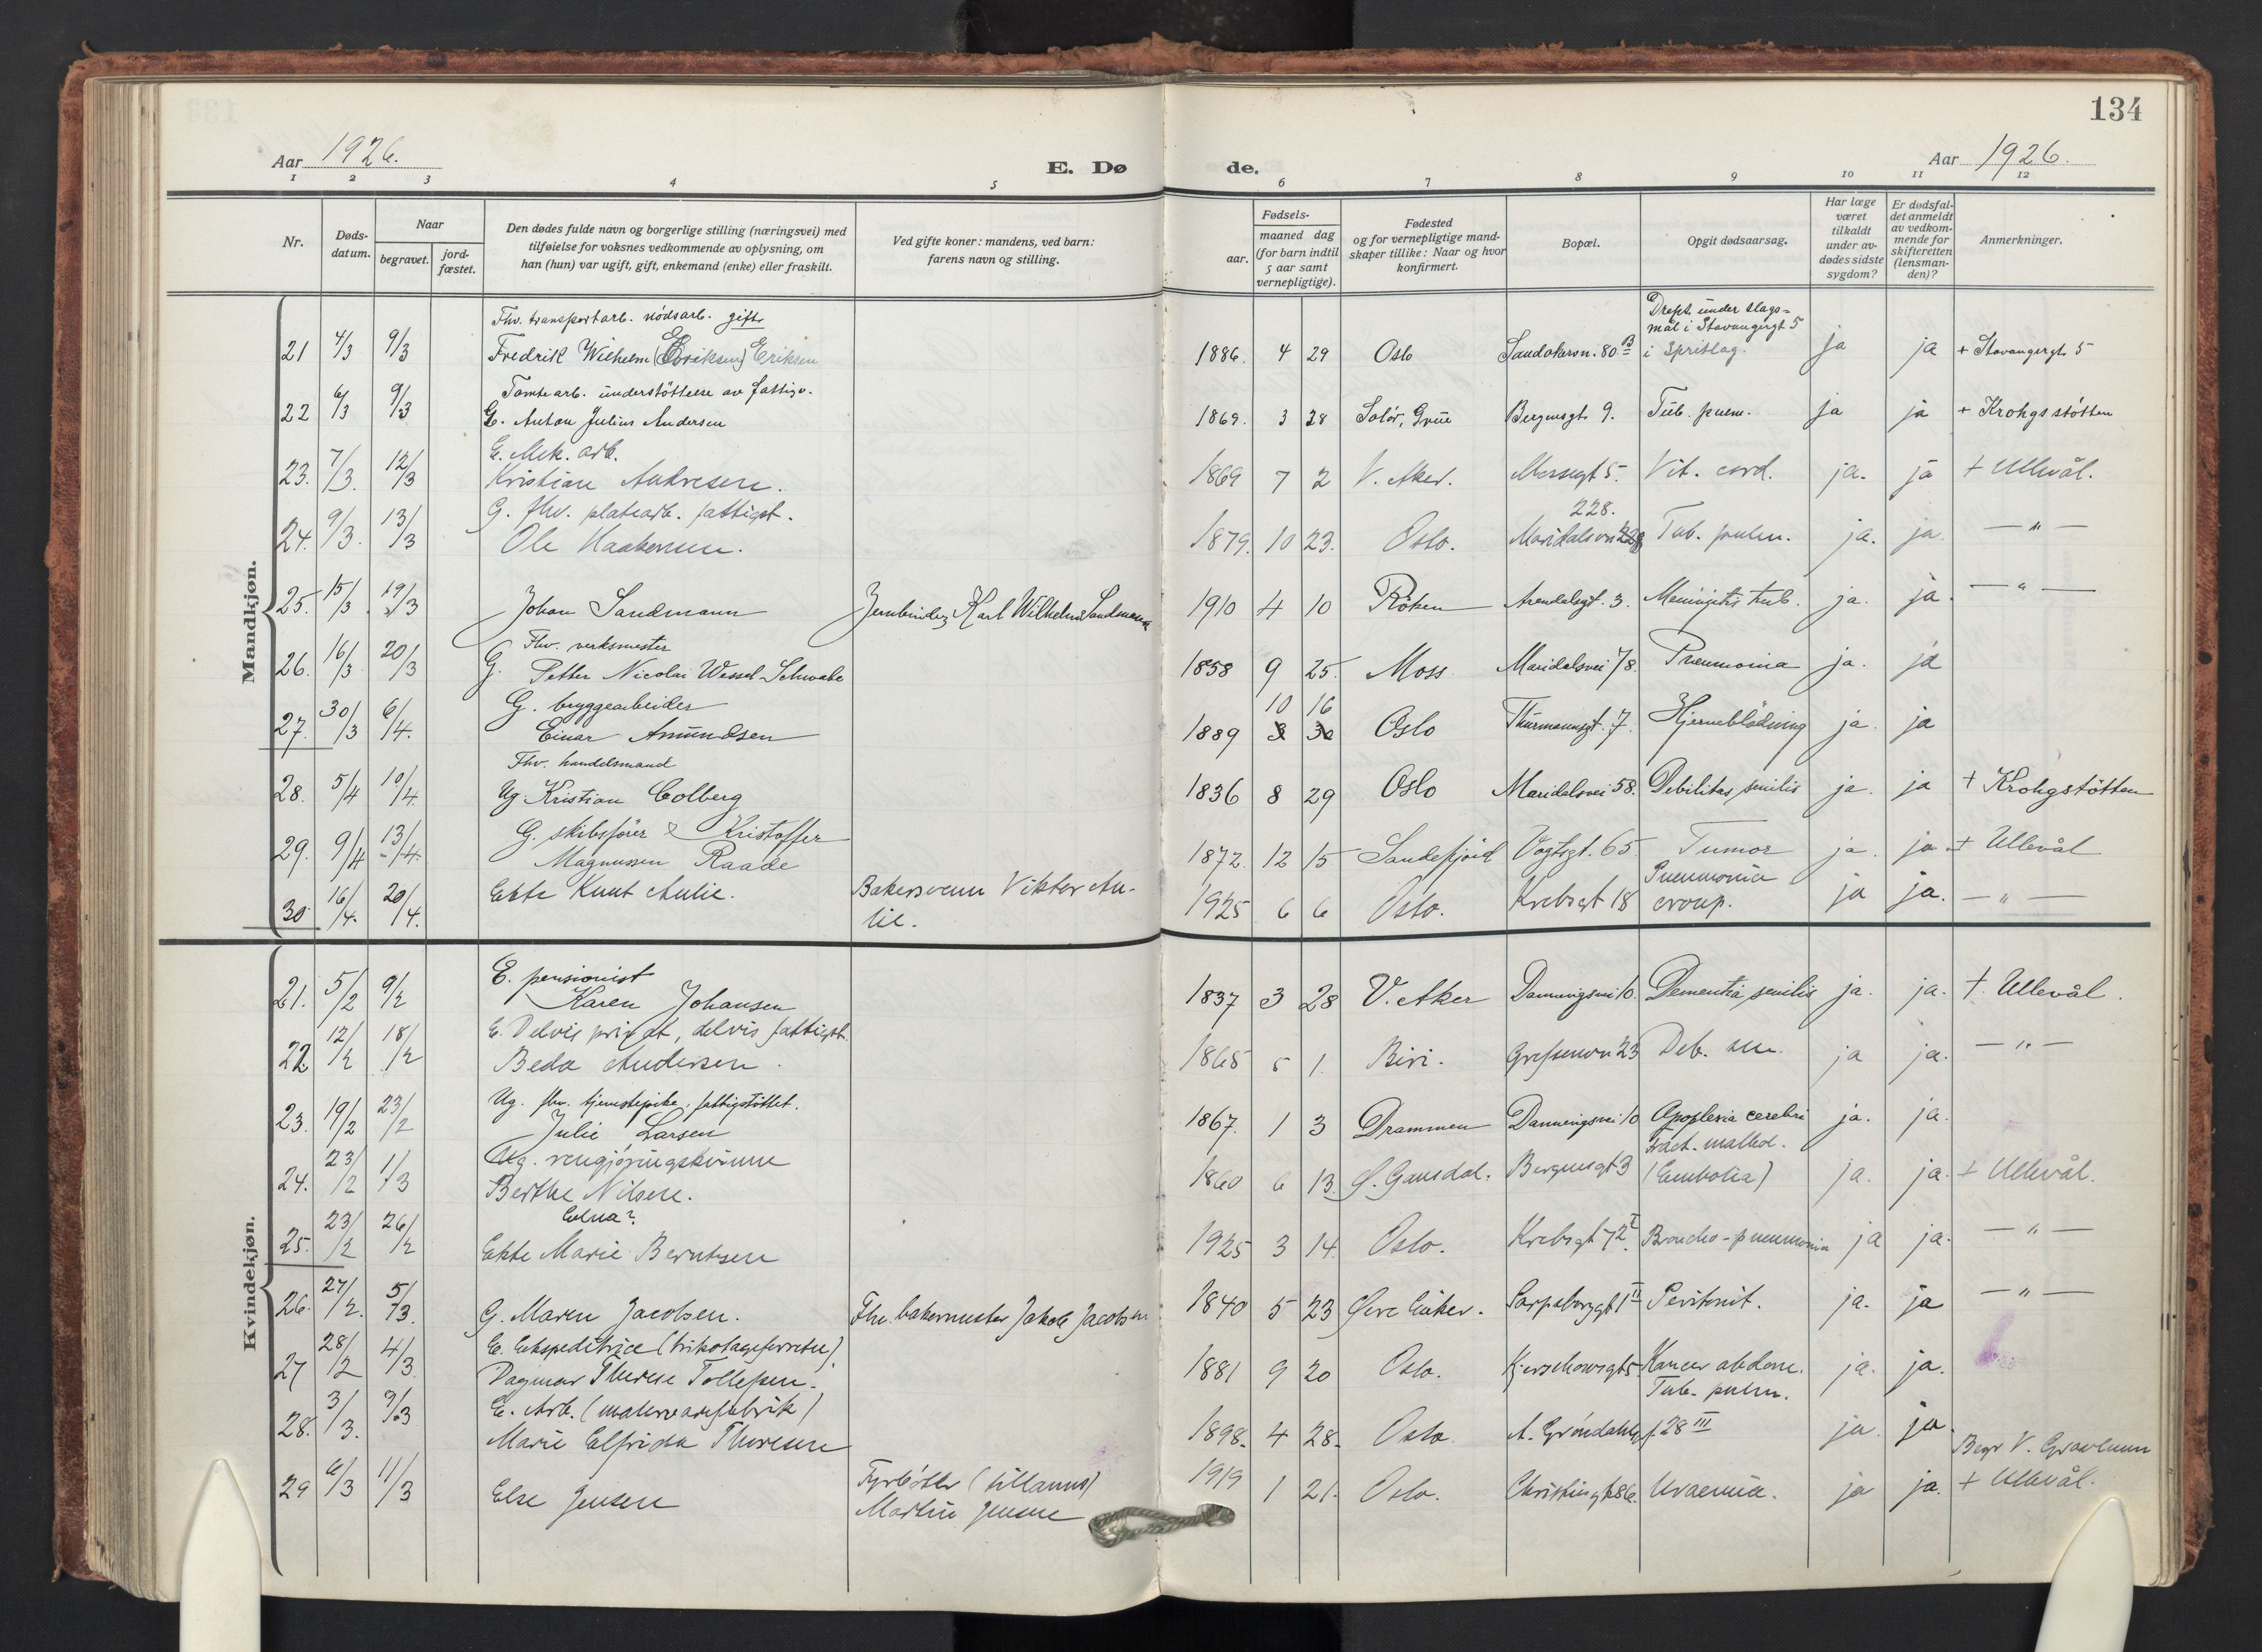 134
Aar 1926.
E. Døde.
Aar 1926.
1 2 3 4 5 6 7 8 9 10 11 12
Nr.
Døds-
datum.
Naar
begravet.
jord-
fæstet.
Den dødes fulde navn og borgerlige stilling (næringsvei) med
tilføielse for voksnes vedkommende av oplysning, om
han (hun) var ugift, gift, enkemand (enke) eller fraskilt.
Ved gifte koner: mandens, ved barn:
farens navn og stilling.
Fødsels-
aar.
maaned dag
(for barn indtil
5 aar samt
vernepligtige).
Fødested
og for vernepligtige mand-
skaper tillike: Naar og hvor
konfirmert.
Bopæl.
Opgit dødsaarsag.
Har læge
været
tilkaldt
under av-
dødes sidste
sygdom?
Er dødsfal-
det anmeldt
av vedkom-
mende for
skifteretten
(lensman-
den)?
Anmerkninger.
Mandkjøn.
Fhv. transportarb. nödsarb. gift
Drept under slags-
mål i Stavangergt 5
21 4/3 9/3 Fredrik Wilhelm (Eriksen) Eriksen 1886. 4 29 Oslo Sandakervn. 80 B i Spritlag. ja ja + Stavangergt. 5
Tomtearb. understöttelse av fattigv.
22 6/3 9/3 G. Anton Julius Andersen 1869. 3 28 Solör, Grue Bergensgt. 9. Tub. pulm. ja ja + Krohgsstötten
E. Mek. arb.
23. 7/3. 12/3 Kristian Andresen. 1869 7 2 V. Aker. 5. Vit. cord. ja. ja + Ullevål.
G. fhv. platearb. fattigst.
228.
24. 9/3. 13/3 Ole Haakensen. 1879. 10 23. Oslo. Maridalsvn 228 Tub. pulm. ja. ja. — " —
25. 15/3. 19/3 Johan Sandmann Jernbinder Karl Wilhelm Sandmann 1910 4 10 Röken Arendalsgt. 3. Meningitis tub. ja. ja. — " —
Fhv. verksmester
26. 16/3 20/3 G. Petter Nicolai Wessel Schwabe 1858 9 25. Moss Maridalsvei 78. Pneumonia ja. ja
G. bryggearbeider
10 16
27. 30/3 6/4. Einar Amundsen 1889 3 30 Oslo Thurmannsgt. 7. Hjerneblödning ja. ja
Fhv. handelsmand
28. 5/4 10/4. Ug. Kristian Colberg 1836 8 29 Oslo Maridalsvei 58. Debilitas senilis ja. ja + Krohgstötten
29. 9/4 13/4. G. skibsfører Kristoffer
Magnussen Raade 1872. 12 15 Sandefjord Vogtsgt. 65 Tumor ja. ja. + Ullevål
30 16/4. 20/4. Ekte Knut Aulie. Bakersvenn Viktor Au-
lie. 1925 6 6 Oslo. Krebsgt 18 Pneumonia
croup. ja ja. — " —
Kvindekjøn.
E. pensionist
21. 5/2 9/2 Karen Johansen 1837 3 28 V. Aker Dannevigsvei 10. Dementia senilis ja. ja. + Ullevål.
E. Delvis privat, delvis fattigst.
22 12/2 18/2 Beda Andersen. 1865 5 1. Biri. Grefsenvn 23 Deb. sen. ja ja. — " —
Ug. fhv. tjenestepike, fattigstöttet.
23. 19/2 23/2 Julie Larsen 1867. 1 3 Drammen Dannevigsvei 10 Apoplexia cerebri ja. ja.
Ug. rengjøringskvinne
Fract. malleol.
24. 23/2 1/3 Berthe Nilsen. 1860 6 13. Ø. Gausdal. Bergensgt 3 (Embolia) ja. ja. + Ullevål.
Edna?
25. 23/2 26/2 Ekte Marie Berntsen 1925 3 14. Oslo. Krebsgt 7 2. Broncho-pneumonia ja ja. — " —
26. 27/2. 5/3. G. Maren Jacobsen. Fhv. bakermester Jakob Jacobsen 1840 5 23 Øvre Eiker. Sarpsborggt 1 II Peritonit. ja. ja — " —
E. Ekspeditrice (trikotageforretn.)
27 28/2 4/3. Dagmar Therese Tollefsen. 1881 9 20 Oslo. Kierschowsgt 5. Kancer abdom. ja. ja.
E. Arb. (malervarefabrik)
Tub. pulm.
28. 3/3. 9/3 Marie Elfrida Thoresen 1898. 4 28. Oslo A. Gröndahlsg. 28 III ja. ja.
Begr V. Gravlunn
29 6/3 11/3 Else Jensen Fyrböter (Lillanns)
Martin Jensen 1919 1 21. Oslo. Christiesgt 36. Uraemia. ja ja. + Ullevål.